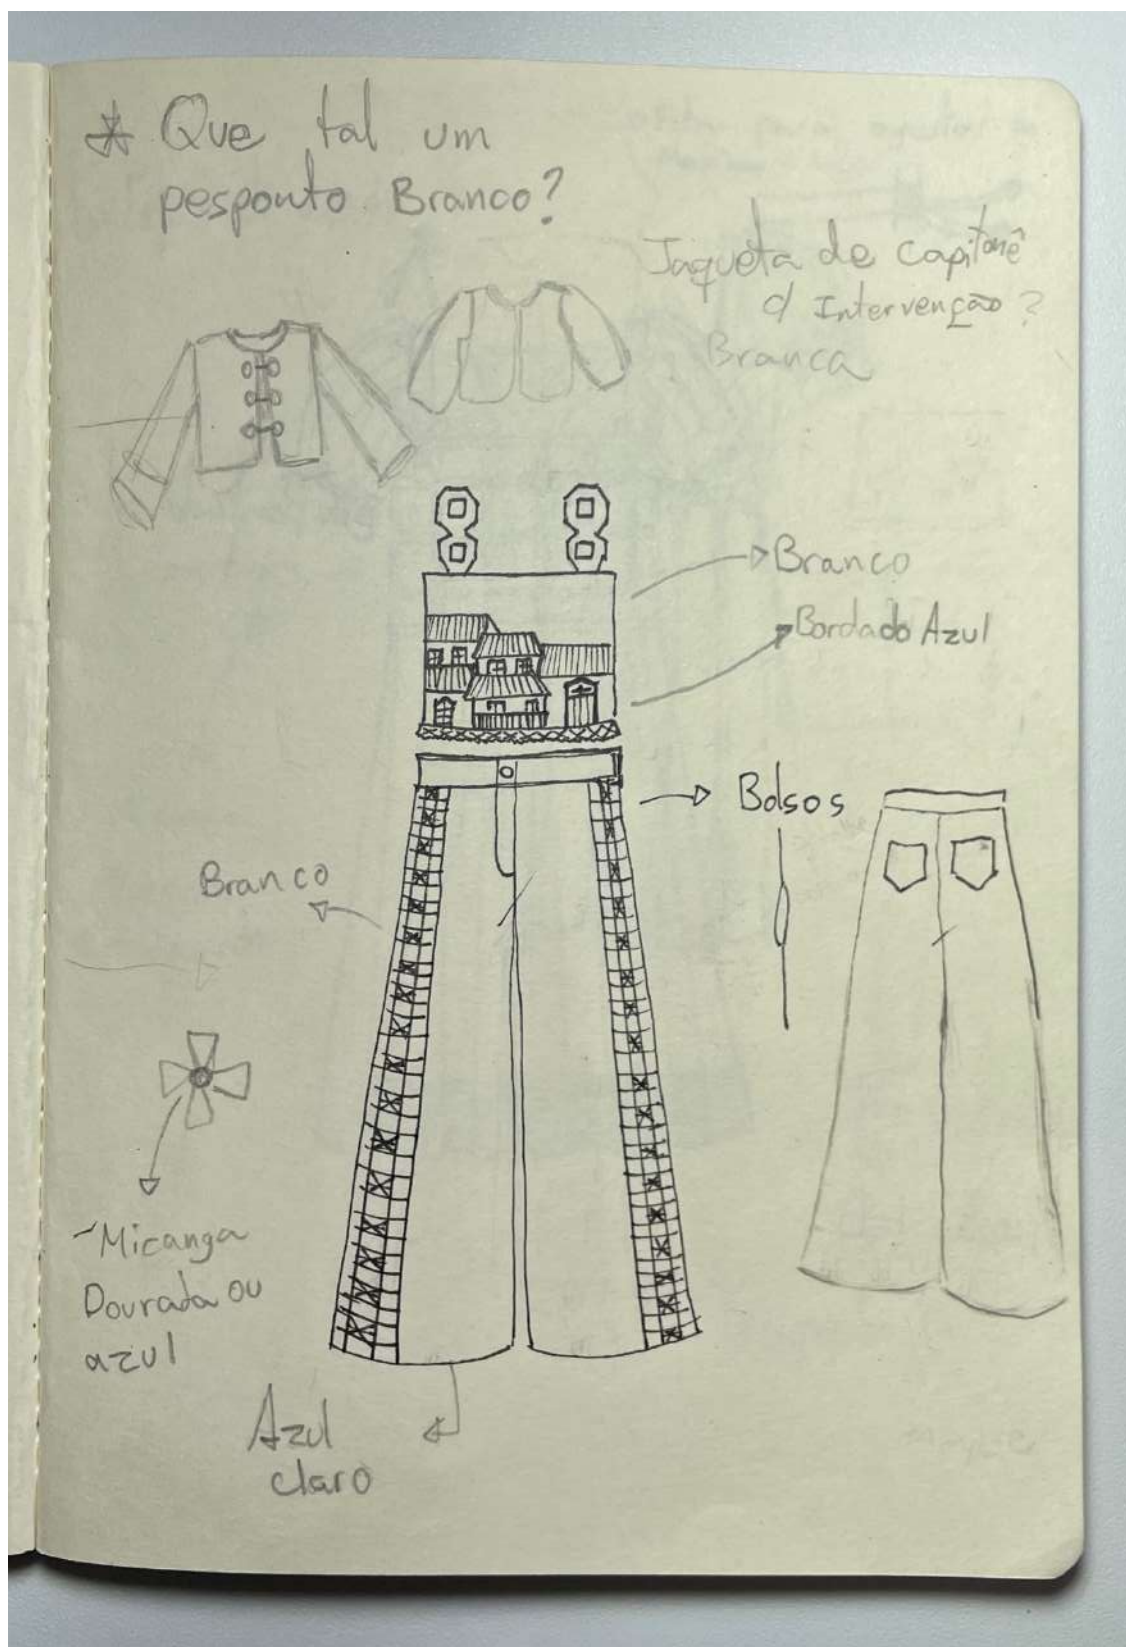 * Que tal um
pesponto Branco?
Jaqueta de capitonê
c/ Intervenção?
Branca
Branco
Bordado Azul
Bolsos
Branco
Micanga
Dourada ou
azul
Azul
claro